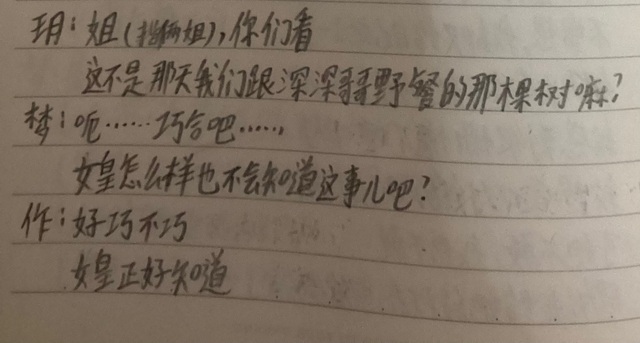 玥：姐(指俩姐)，你们看
这不是那天我们跟深深哥哥野餐的那棵树嘛？
梦：呃……巧合吧……
女皇怎么样也不会知道这事儿吧？
作：好巧不巧
女皇正好知道